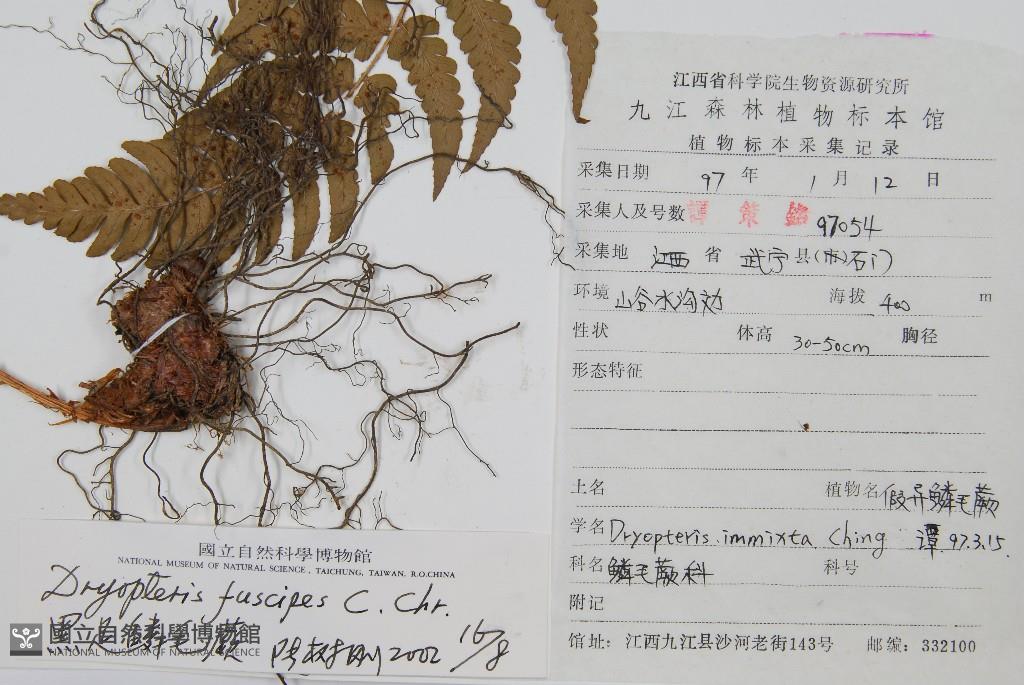 江西省科学院生物资源研究所
九江森林植物标本馆
植物标本采集记录
采集日期 97 年 1 月 12 日
采集人及号数 譚策銘 97054
采集地 江西 省 武宁 县(市)石门
环境 山谷水沟边 海拔 400 m
性状 体高 30-50cm 胸径
形态特征
土名 植物名 假异鳞毛蕨
学名 Dryopteris immixta Ching 谭 97.3.15.
科名 鳞毛蕨科 科号
附记
馆址: 江西九江县沙河老街143号 邮编: 332100
國立自然科學博物館
NATIONAL MUSEUM OF NATURAL SCIENCE, TAICHUNG, TAIWAN, R.O.CHINA
Dryopteris fuscipes C. Chr.
黑足鱗毛蕨 2002 16/8
國立自然科學博物館
NATIONAL MUSEUM OF NATURAL SCIENCE